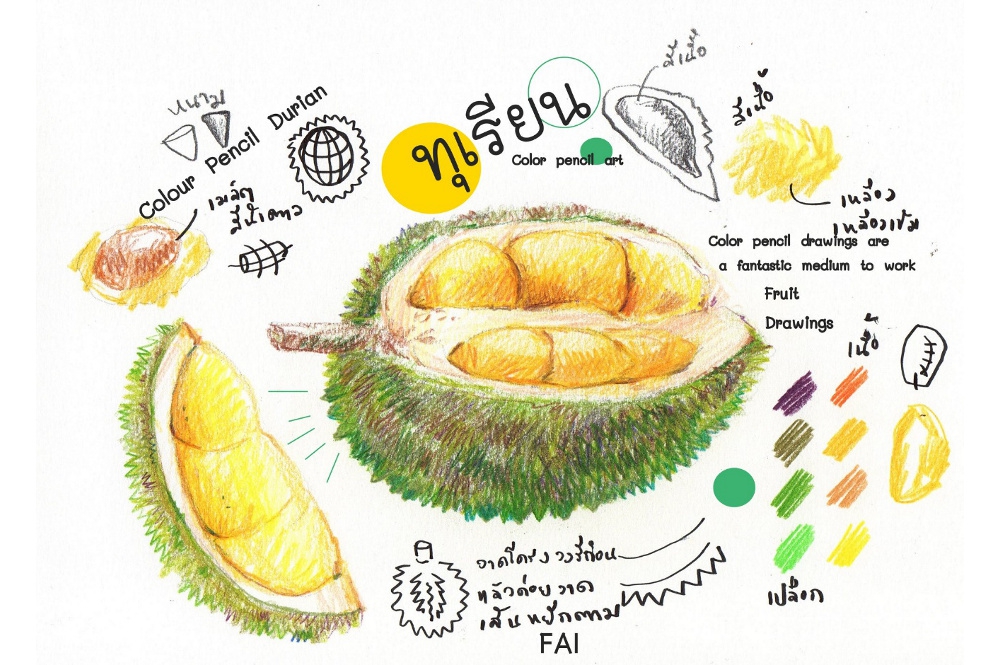 สีเนื้อ
หนาม
Colour Pencil Durian
ทุเรียน
Color pencil art
สีเนื้อ
เมล็ด
สีน้ำตาล
เหลือง
เหลืองเข้ม
Color pencil drawings are
a fantastic medium to work
Fruit
Drawings
เนื้อ
วาดโครง วงรีก่อน
แล้วค่อย วาด
เส้นหยักตาม
เปลือก
FAI